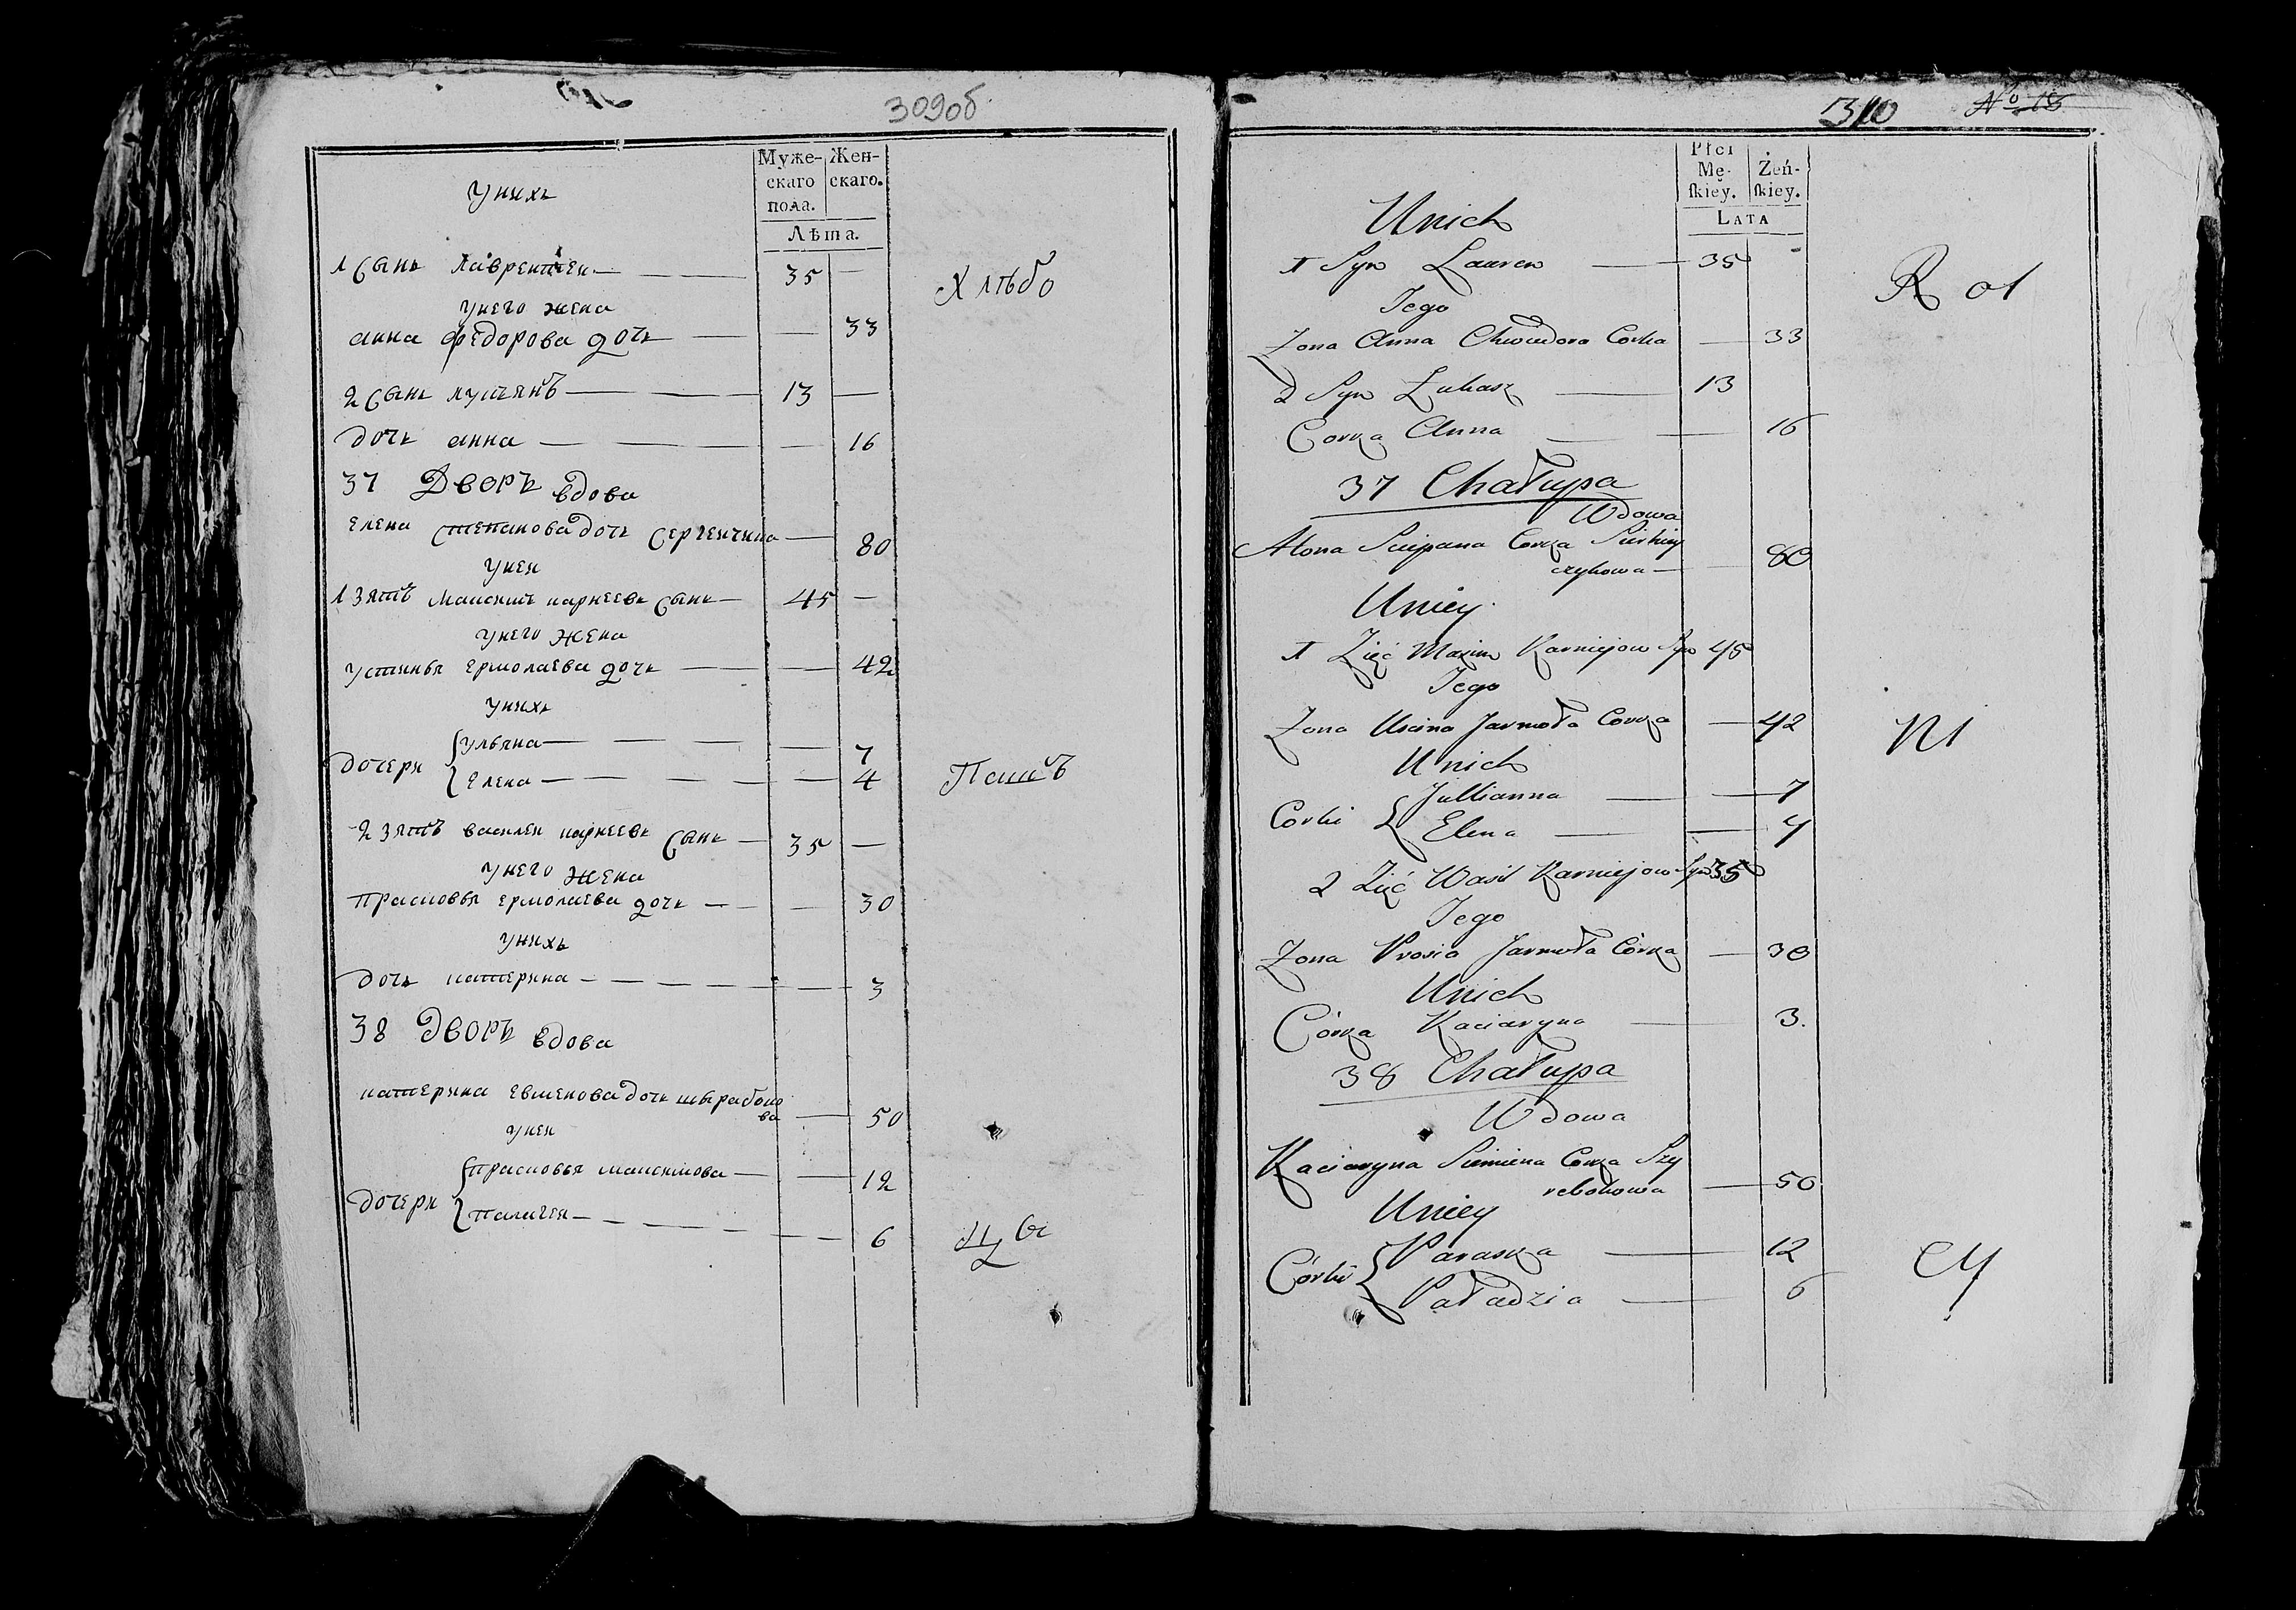 309об
Муже- Жен-
скаго скаго.
пола.
Лѣта.
унихъ
1 сынъ лаврентей 35
унего жена
анна федорова дочь 33
2 сынъ лукъянъ 13
дочь анна 16
37 Дворъ вдова
елена степанова дочь сергеичика 80
унеи
1 зять максимъ карнеевъ сынъ 45
унего жена
устинья ермолаева дочь 42
унихъ
дочери { ульяна 7
елена 4
2 зять василеи карнеевъ сынъ 35
унего жена
прасковья ермолаева дочь 30
унихъ
дочь катерина 3
38 дворъ вдова
катерина евменова дочь шырабоко
ва 50
унеи
дочери { прасковья максимова 12
палагея 6
Хлѣбо
Пашъ
310 No 18
Płci
Mę- Żeń-
ſkiey. ſkiey.
LATA
Unich
1 Syn Lauren 35
Jego
Zona Anna Chwiedora Corka 33
2 Syn Łukasz 13
Corka Anna 16
37 Chałupa
Wdowa
Alona Sciepana Corka Sierhiey
czykowa 80
Uniey
1 Zięć Maxim Karniejow Syn 45
Jego
Zona Uscina Jarmoła Corka 42
Unich
Corki { Jullianna 7
Elena 4
2 Zięć Wasil Karniejow Syn 35
Jego
Zona Prosia Jarmoła Córka 30
Unich
Córka Kaciaryna 3.
38 Chałupa
Wdowa
Kaciaryna Siemiena Corka Szy
rebokowa 50
Uniey
Córki { Paraska 12
Paładzia 6
R ot